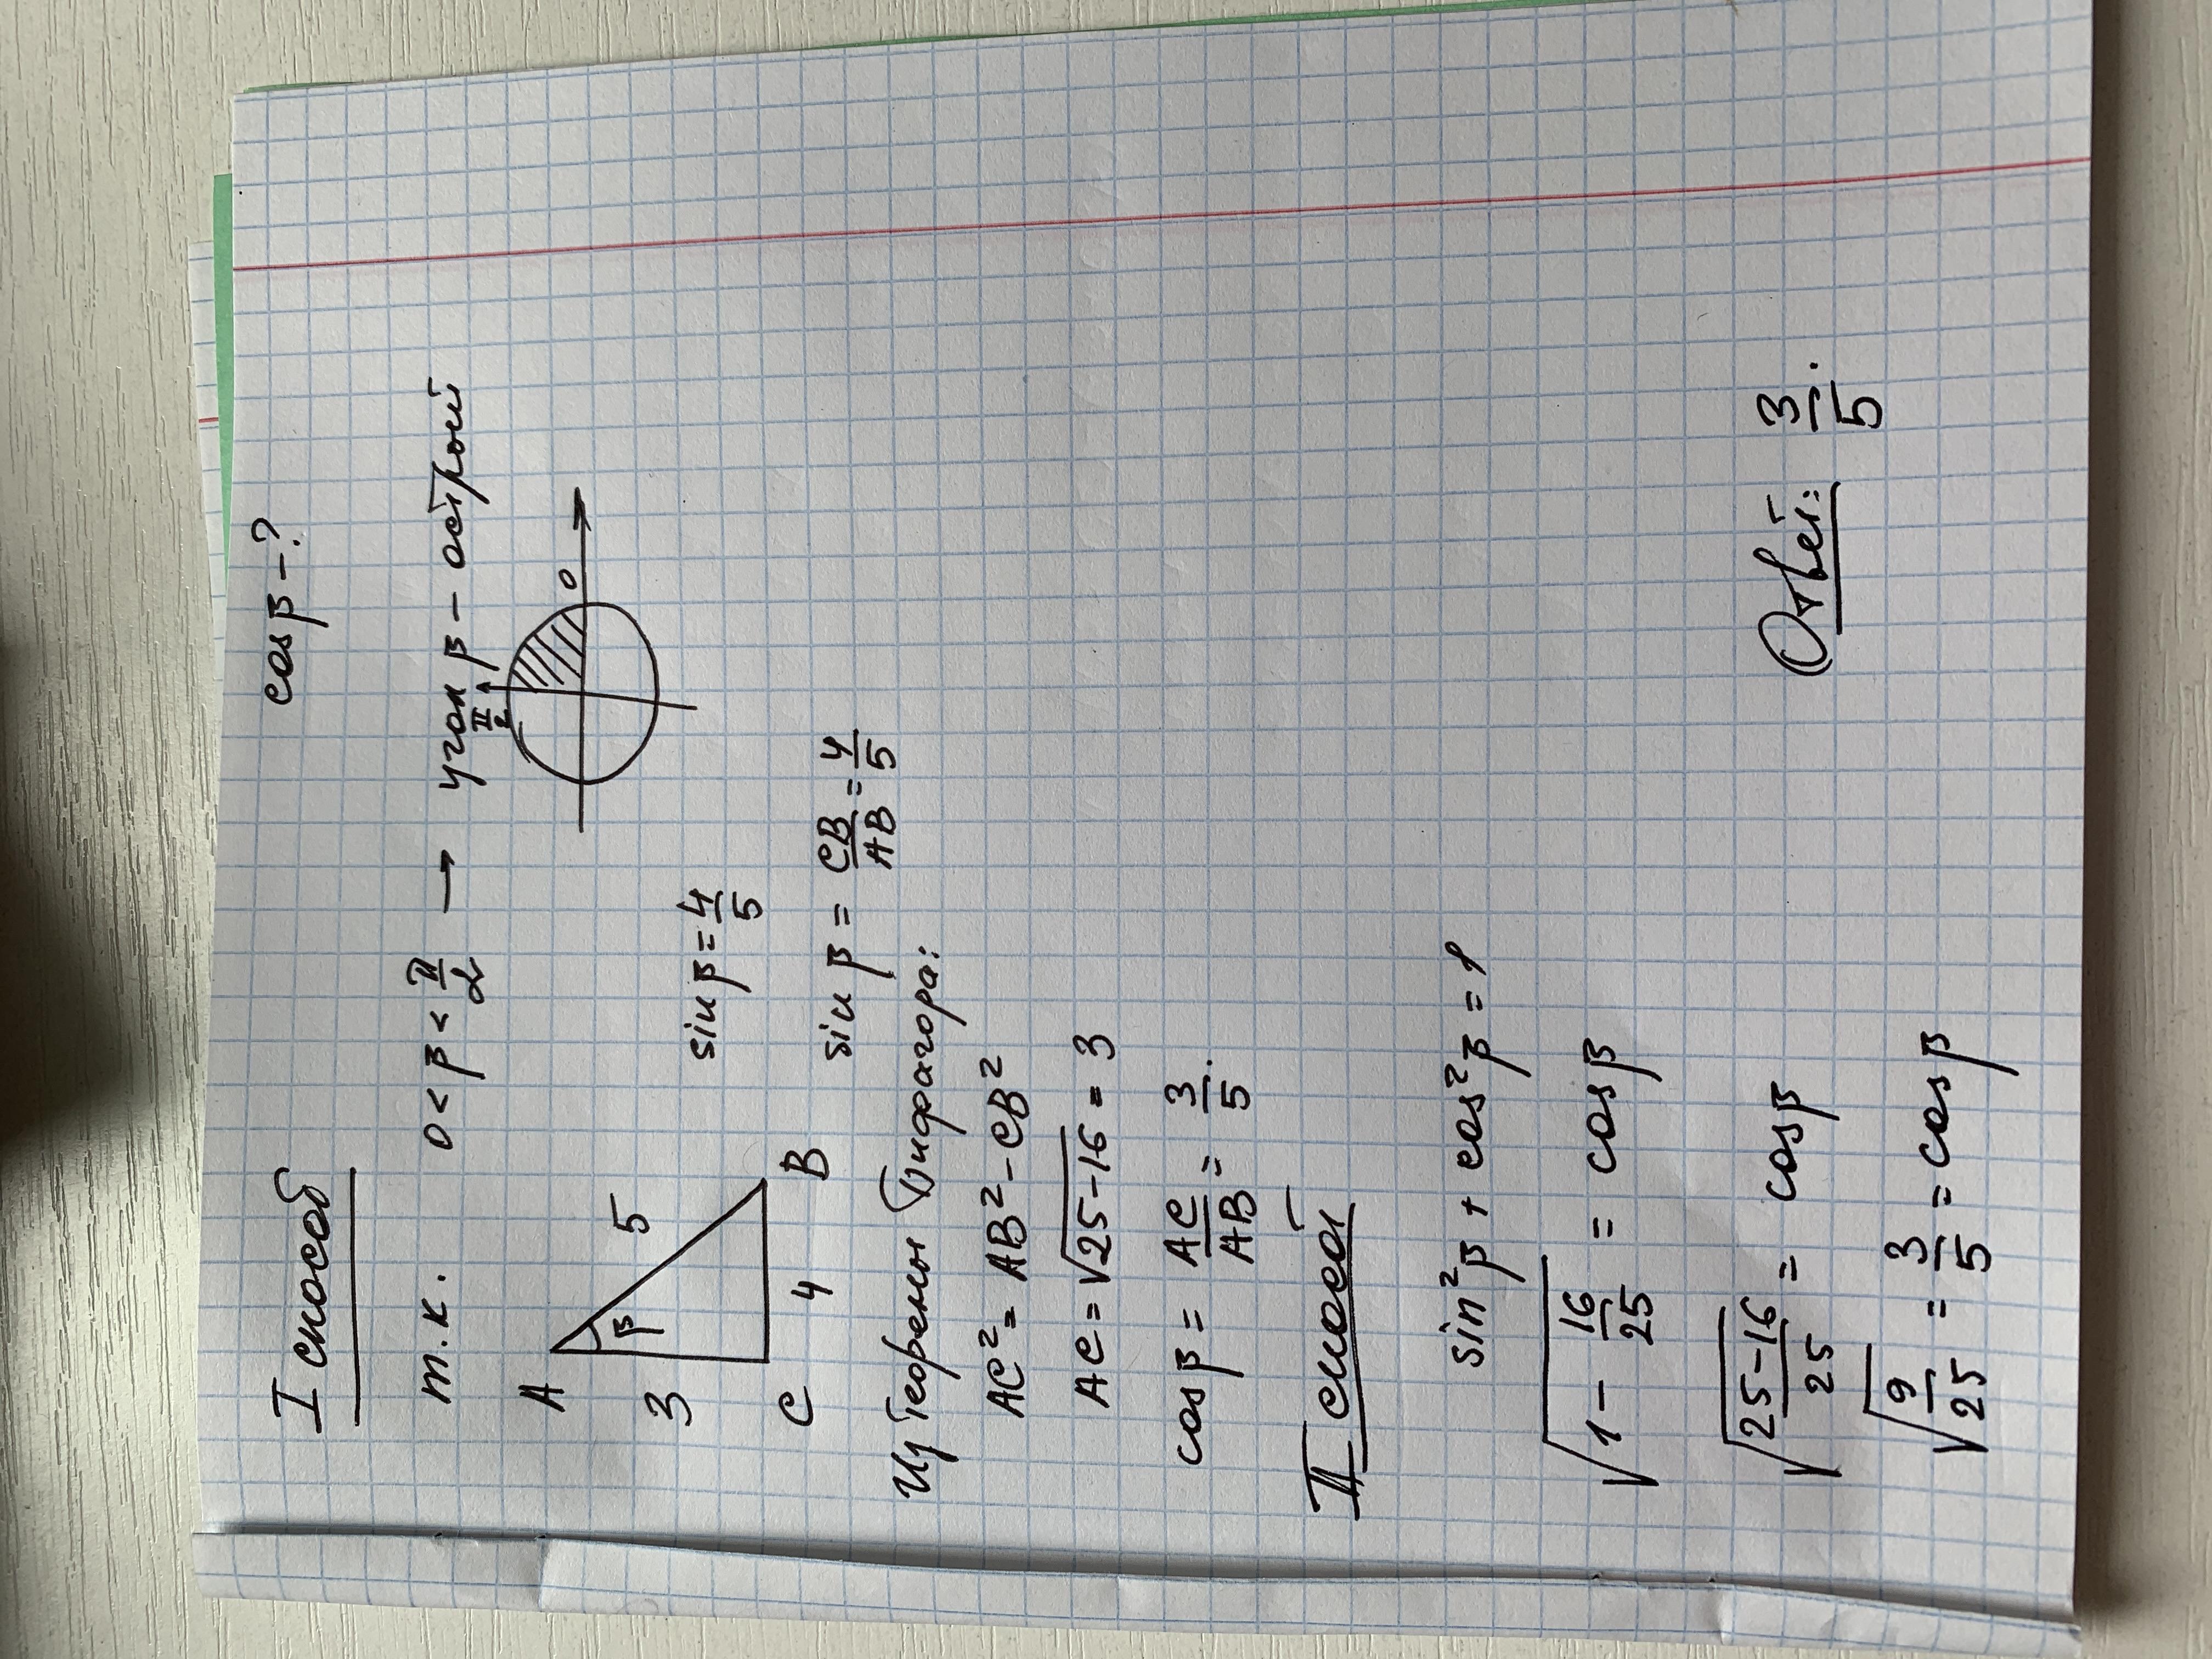 I способ
cos β - ?
т.к. 0 < β < π/2 → угол β - острый
π/2
0
A
β
5
3
C
4
B
sin β = 4/5
sin β = CB/AB = 4/5
Из теоремы Пифагора:
AC² = AB² - CB²
AC = √(25-16) = 3
cos β = AC/AB = 3/5.
II способ
sin²β + cos²β = 1
√(1 - 16/25) = cos β
√((25-16)/25) = cos β
√(9/25) = 3/5 = cos β
Ответ: 3/5.